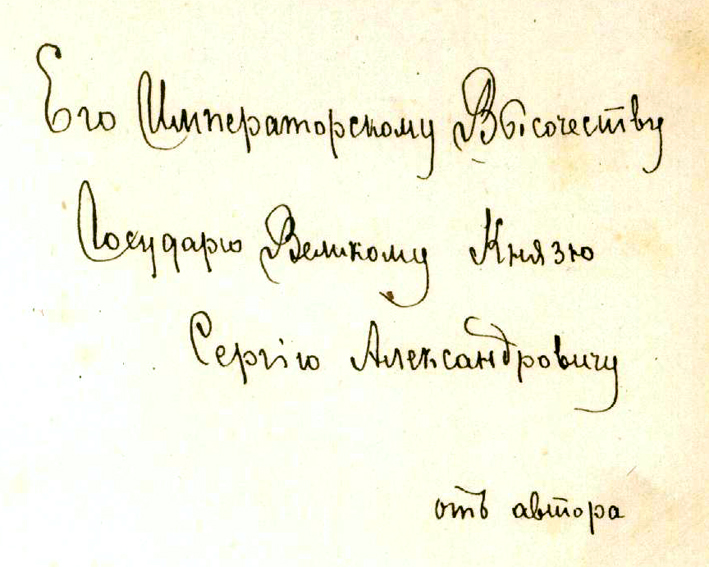 Его Императорскому Высочеству
Государю Великому Князю
Сергію Александровичу
отъ автора